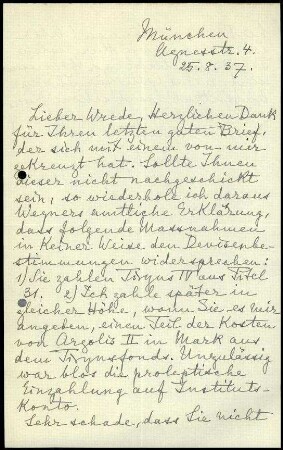 München
Agnesstr. 4.
25. 8. 37.
Lieber Wrede, Herzlichen Dank
für Ihren letzten guten Brief,
der sich mit einem von mir
gekreuzt hat. Sollte Ihnen
dieser nicht nachgeschickt
sein, so wiederhole ich daraus
Wegners amtliche Erklärung,
dass folgende Massnahmen
in keiner Weise den Devisenbe-
stimmungen widersprechen:
1) Sie zahlen Tiryns IV aus Titel
31. 2) Ich zahle später in
gleicher Höhe, wann Sie es mir
angeben, einen Teil der Kosten
von Argolis II in Mark aus
dem Tirynsfonds. Unzulässig
war blos die proleptische
Einzahlung auf Instituts-
Konto.
Sehr schade, dass Sie nicht